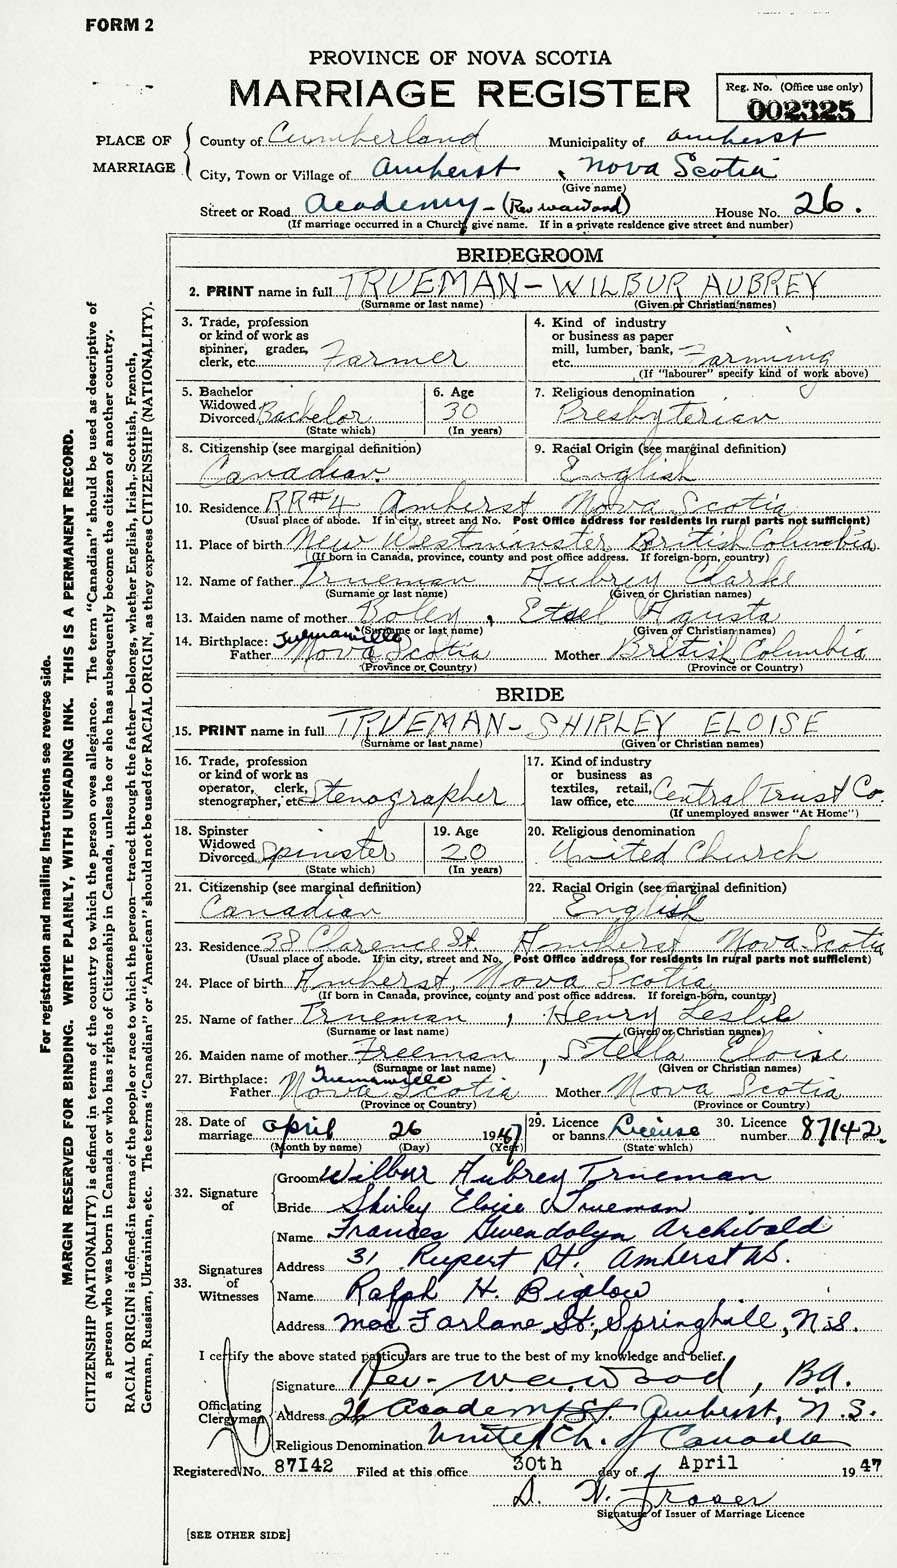 FORM 2
PROVINCE OF NOVA SCOTIA
MARRIAGE REGISTER
Reg. No. (Office use only)
002325
PLACE OF MARRIAGE
County of Cumberland Municipality of Amherst
City, Town or Village of Amherst, Nova Scotia
(Give name)
Street or Road Academy - (Rev WAWood) House No. 26.
(If marriage occurred in a Church give name. If in a private residence give street and number)
BRIDEGROOM
2. PRINT name in full TRUEMAN - WILBUR AUBREY
(Surname or last name) (Given or Christian names)
3. Trade, profession or kind of work as spinner, grader, clerk, etc. Farmer
4. Kind of industry or business as paper mill, lumber, bank, etc. Farming
(If "labourer" specify kind of work above)
5. Bachelor Widowed Divorced Bachelor
(State which)
6. Age 30
(In years)
7. Religious denomination
Presbyterian
8. Citizenship (see marginal definition)
Canadian.
9. Racial Origin (see marginal definition)
English
10. Residence RR#4 Amherst Nova Scotia
(Usual place of abode. If in city, street and No. Post Office address for residents in rural parts not sufficient)
11. Place of birth New Westminster British Columbia
(If born in Canada, province, county and post office address. If foreign-born, country)
12. Name of father Trueman Aubrey Clarke
(Surname or last name) (Given or Christian names)
13. Maiden name of mother Boley, Etael Agusta
(Surname or last name) (Given or Christian names)
14. Birthplace: Truemanville
Father Nova Scotia Mother British Columbia
(Province or Country) (Province or Country)
BRIDE
15. PRINT name in full TRUEMAN - SHIRLEY ELOISE
(Surname or last name) (Given or Christian names)
16. Trade, profession or kind of work as operator, clerk, stenographer, etc. Stenographer
17. Kind of industry or business as textiles, retail, law office, etc. Central Trust Co.
(If unemployed answer "At Home")
18. Spinster Widowed Divorced Spinster
(State which)
19. Age 20
(In years)
20. Religious denomination
United Church
21. Citizenship (see marginal definition)
Canadian
22. Racial Origin (see marginal definition)
English
23. Residence 38 Clarence St. Amherst Nova Scotia
(Usual place of abode. If in city, street and No. Post Office address for residents in rural parts not sufficient)
24. Place of birth Amherst, Nova Scotia
(If born in Canada, province, county and post office address. If foreign-born, country)
25. Name of father Trueman, Henry Leslie
(Surname or last name) (Given or Christian names)
26. Maiden name of mother Freeman, Stella Eloise
(Surname or last name) (Given or Christian names)
27. Birthplace: Truemanville
Father Nova Scotia Mother Nova Scotia
(Province or Country) (Province or Country)
28. Date of marriage April 26 1947
(Month by name) (Day) (Year)
29. Licence or banns License
(State which)
30. Licence number 87142.
32. Signature of
Groom Wilbur Aubrey Trueman
Bride Shirley Eloise Trueman
33. Signatures of Witnesses
Name Frances Gwendolyn Archibald
Address 31 Rupert St. Amherst N.S.
Name Ralph H. Bigelow
Address MacFarlane St., Springhill, N.S.
I certify the above stated particulars are true to the best of my knowledge and belief.
Officiating Clergyman
Signature Rev. W.A. Wood, B.A.
Address 26 Academy St. Amherst, N.S.
Religious Denomination United Ch. of Canada
Registered No. 87142 Filed at this office 30th day of April 1947
D. W. Fraser
Signature of Issuer of Marriage Licence
[SEE OTHER SIDE]
For registration and mailing instructions see reverse side.
MARGIN RESERVED FOR BINDING. WRITE PLAINLY, WITH UNFADING INK. THIS IS A PERMANENT RECORD.
CITIZENSHIP (NATIONALITY) is defined in terms of the country to which the person owes allegiance. The term "Canadian" should be used as descriptive of
a person who was born in Canada or who has rights of Citizenship in Canada, unless he or she has subsequently become the citizen of another country.
RACIAL ORIGIN is defined in terms of the people or race to which the person—traced through the father—belongs, whether English, Irish, Scottish, French,
German, Russian, Ukrainian, etc. The terms "Canadian" or "American" should not be used for RACIAL ORIGIN, as they express CITIZENSHIP (NATIONALITY).